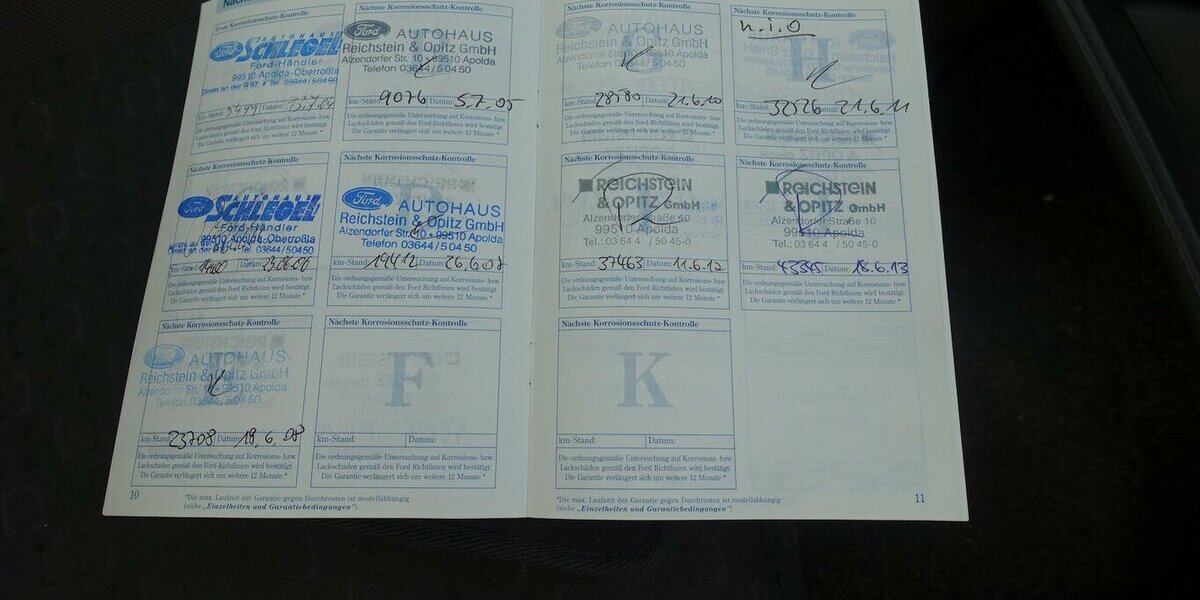 Erste Korrosionsschutz-Kontrolle
AUTOHAUS
Ford SCHLEGEL
Ford-Händler
99510 Apolda-Oberroßla
Direkt an der B 87
km-Stand: Datum:
Die ordnungsgemäße Untersuchung auf Korrosions- bzw.
Lackschäden gemäß den Ford Richtlinien wird bestätigt.
Die Garantie verlängert sich um weitere 12 Monate *
Nächste Korrosionsschutz-Kontrolle
Ford AUTOHAUS
Reichstein & Opitz GmbH
Alzendorfer Str. 10 • 99510 Apolda
Telefon 03644/50450
km-Stand: 9076 Datum: 5.7.05
Die ordnungsgemäße Untersuchung auf Korrosions- bzw.
Lackschäden gemäß den Ford Richtlinien wird bestätigt.
Die Garantie verlängert sich um weitere 12 Monate *
Nächste Korrosionsschutz-Kontrolle
AUTOHAUS
Ford SCHLEGEL
Ford-Händler
99510 Apolda-Oberroßla
Direkt an der B 87 Tel. 03644/50450
km-Stand: Datum:
Die ordnungsgemäße Untersuchung auf Korrosions- bzw.
Lackschäden gemäß den Ford Richtlinien wird bestätigt.
Die Garantie verlängert sich um weitere 12 Monate *
Nächste Korrosionsschutz-Kontrolle
Ford AUTOHAUS
Reichstein & Opitz GmbH
Alzendorfer Str. 10 • 99510 Apolda
Telefon 03644/50450
km-Stand: 19412 Datum: 26.6.07
Die ordnungsgemäße Untersuchung auf Korrosions- bzw.
Lackschäden gemäß den Ford Richtlinien wird bestätigt.
Die Garantie verlängert sich um weitere 12 Monate *
Nächste Korrosionsschutz-Kontrolle
Ford AUTOHAUS
Reichstein & Opitz GmbH
Alzendorfer Str. 10 • 99510 Apolda
Telefon 03644/50450
km-Stand: 23708 Datum: 18.6.08
Die ordnungsgemäße Untersuchung auf Korrosions- bzw.
Lackschäden gemäß den Ford Richtlinien wird bestätigt.
Die Garantie verlängert sich um weitere 12 Monate *
Nächste Korrosionsschutz-Kontrolle
F
km-Stand: Datum:
Die ordnungsgemäße Untersuchung auf Korrosions- bzw.
Lackschäden gemäß den Ford Richtlinien wird bestätigt.
Die Garantie verlängert sich um weitere 12 Monate *
10
*Die max. Laufzeit der Garantie gegen Durchrosten ist modellabhängig
(siehe „Einzelheiten und Garantiebedingungen")
Nächste Korrosionsschutz-Kontrolle
Ford AUTOHAUS
Reichstein & Opitz GmbH
Alzendorfer Str. 10 • 99510 Apolda
Telefon 03644/50450
km-Stand: 28580 Datum: 21.6.10
Die ordnungsgemäße Untersuchung auf Korrosions- bzw.
Lackschäden gemäß den Ford Richtlinien wird bestätigt.
Die Garantie verlängert sich um weitere 12 Monate *
Nächste Korrosionsschutz-Kontrolle
n.i.O
H
km-Stand: 32526 Datum: 21.6.11
Die ordnungsgemäße Untersuchung auf Korrosions- bzw.
Lackschäden gemäß den Ford Richtlinien wird bestätigt.
Die Garantie verlängert sich um weitere 12 Monate *
Nächste Korrosionsschutz-Kontrolle
REICHSTEIN
& OPITZ GmbH
Alzendorfer Straße 10
99510 Apolda
Tel.: 03 64 4 / 50 45-0
km-Stand: 37463 Datum: 11.6.12
Die ordnungsgemäße Untersuchung auf Korrosions- bzw.
Lackschäden gemäß den Ford Richtlinien wird bestätigt.
Die Garantie verlängert sich um weitere 12 Monate *
Nächste Korrosionsschutz-Kontrolle
REICHSTEIN
& OPITZ GmbH
Alzendorfer Straße 10
99510 Apolda
Tel.: 03 64 4 / 50 45-0
km-Stand: 43345 Datum: 18.6.13
Die ordnungsgemäße Untersuchung auf Korrosions- bzw.
Lackschäden gemäß den Ford Richtlinien wird bestätigt.
Die Garantie verlängert sich um weitere 12 Monate *
Nächste Korrosionsschutz-Kontrolle
K
km-Stand: Datum:
Die ordnungsgemäße Untersuchung auf Korrosions- bzw.
Lackschäden gemäß den Ford Richtlinien wird bestätigt.
Die Garantie verlängert sich um weitere 12 Monate *
*Die max. Laufzeit der Garantie gegen Durchrosten ist modellabhängig
(siehe „Einzelheiten und Garantiebedingungen")
11